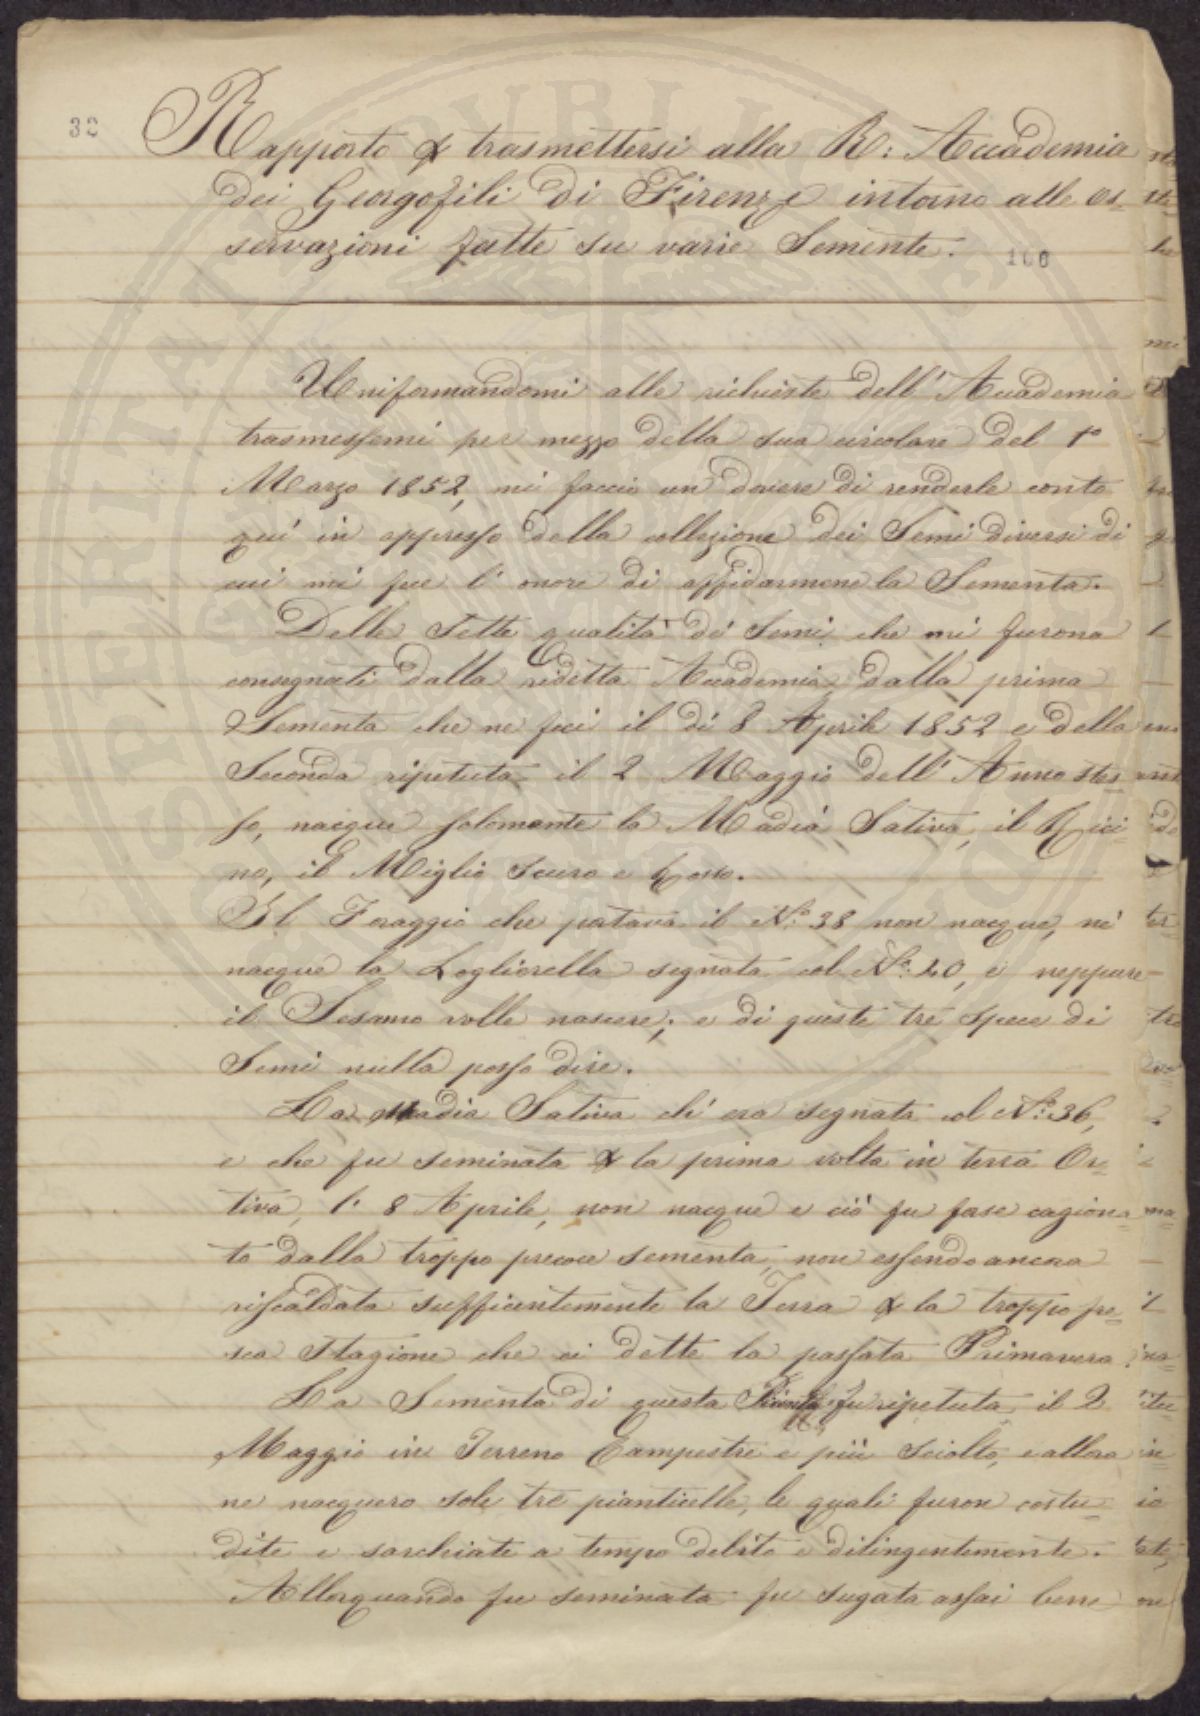 32
Rapporto p trasmettersi alla R: Accademia
dei Georgofili di Firenze intorno alle os=
servazioni fatte su varie Semente.
106
Uniformandomi alle richieste dell'Accademia
trasmessemi per mezzo della sua circolare del 1º
Marzo 1852, mi faccio un dovere di renderle conto
quì in appresso della collezione dei Semi diversi di
cui mi fece l'onore di affidarmene la Sementa.
Delle Sette qualità di Semi che mi furono
consegnati dalla ridetta Accademia, dalla prima
Sementa che ne feci il dì 8 Aprile 1852 e della
Seconda ripetuta il 2 Maggio dell'Anno stes=
so, nacque solamente la Madia Sativa, il Rici
no, il Miglio Scuro e Rosso.
Il Foraggio che portava il Nº: 38 non nacque, nè
nacque la Logliorella segnata col Nº: 40, e neppure
il Sesamo volle nascere; e di queste tre Specie di
Semi nulla posso dire.
La Madia Sativa ch'era segnata col Nº: 36,
e che fu seminata p la prima volta in terra Or=
tiva, l'8 Aprile, non nacque e ciò fu forse cagiona=
to dalla troppo precoce sementa, non essendo ancora
riscaldata sufficentemente la Terra p la troppo fre=
sca Stagione che ci dette la passata Primavera.
La Sementa di questa Pianta fu ripetuta il 2
Maggio in Terreno Campestre e più Sciolto, e allora
ne nacquero sole tre pianticelle, le quali furon costu=
dite e sarchiate a tempo debito e dilingentemente.
Allorquando fu seminata fu sugata assai bene